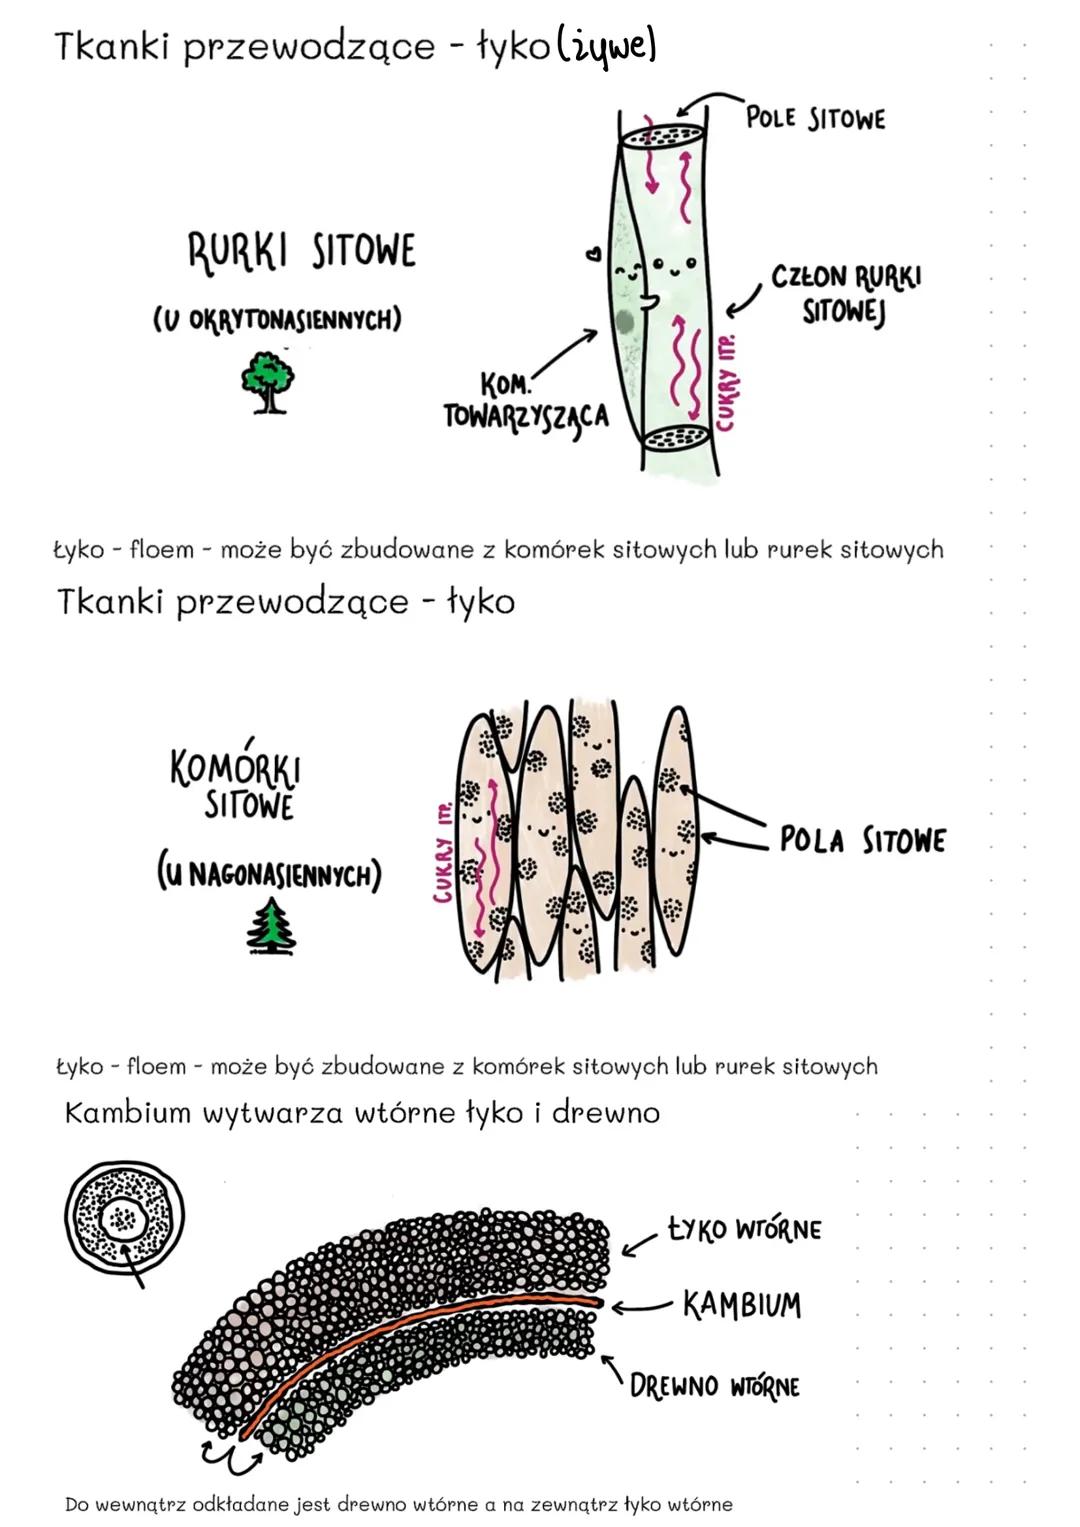 Tkanki przewodzące - łyko (żywe)
POLE SITOWE
RURKI SITOWE
(U OKRYTONASIENNYCH)
CZŁON RURKI
SITOWEJ
CUKRY ITP.
KOM.
TOWARZYSZĄCA
Łyko - floem - może być zbudowane z komórek sitowych lub rurek sitowych
Tkanki przewodzące - łyko
KOMÓRKI
SITOWE
(U NAGONASIENNYCH)
CUKRY ITP.
POLA SITOWE
Łyko - floem - może być zbudowane z komórek sitowych lub rurek sitowych
Kambium wytwarza wtórne łyko i drewno
ŁYKO WTÓRNE
KAMBIUM
DREWNO WTÓRNE
Do wewnątrz odkładane jest drewno wtórne a na zewnątrz łyko wtórne